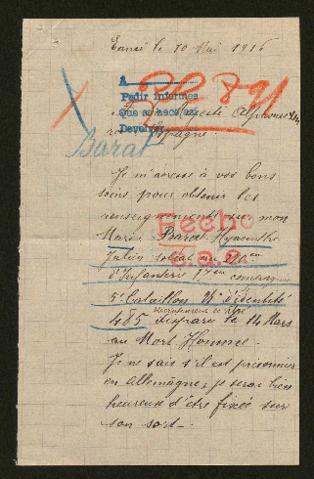 le 10 Mai 1916
A
Pedir informes
Que se haga
Devolver
Alphonse
Espagne.
Barat
Je m'adresse à vos bons
soins pour obtenir les
renseignements sur mon
Mari Barat Hyacinthe
Julien soldat au
d'Infanterie compagnie
5e Bataillon d'identité
recrutement
485 disparu le 14 Mars
au Mort Homme.
Je ne sais s'il est prisonnier
en Allemagne, je serai bien
heureuse d'être fixée sur
son sort.
Fecho